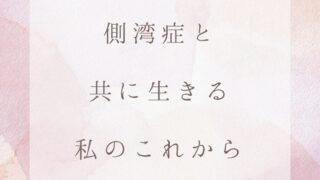 側湾症と
共に生きる
私のこれから